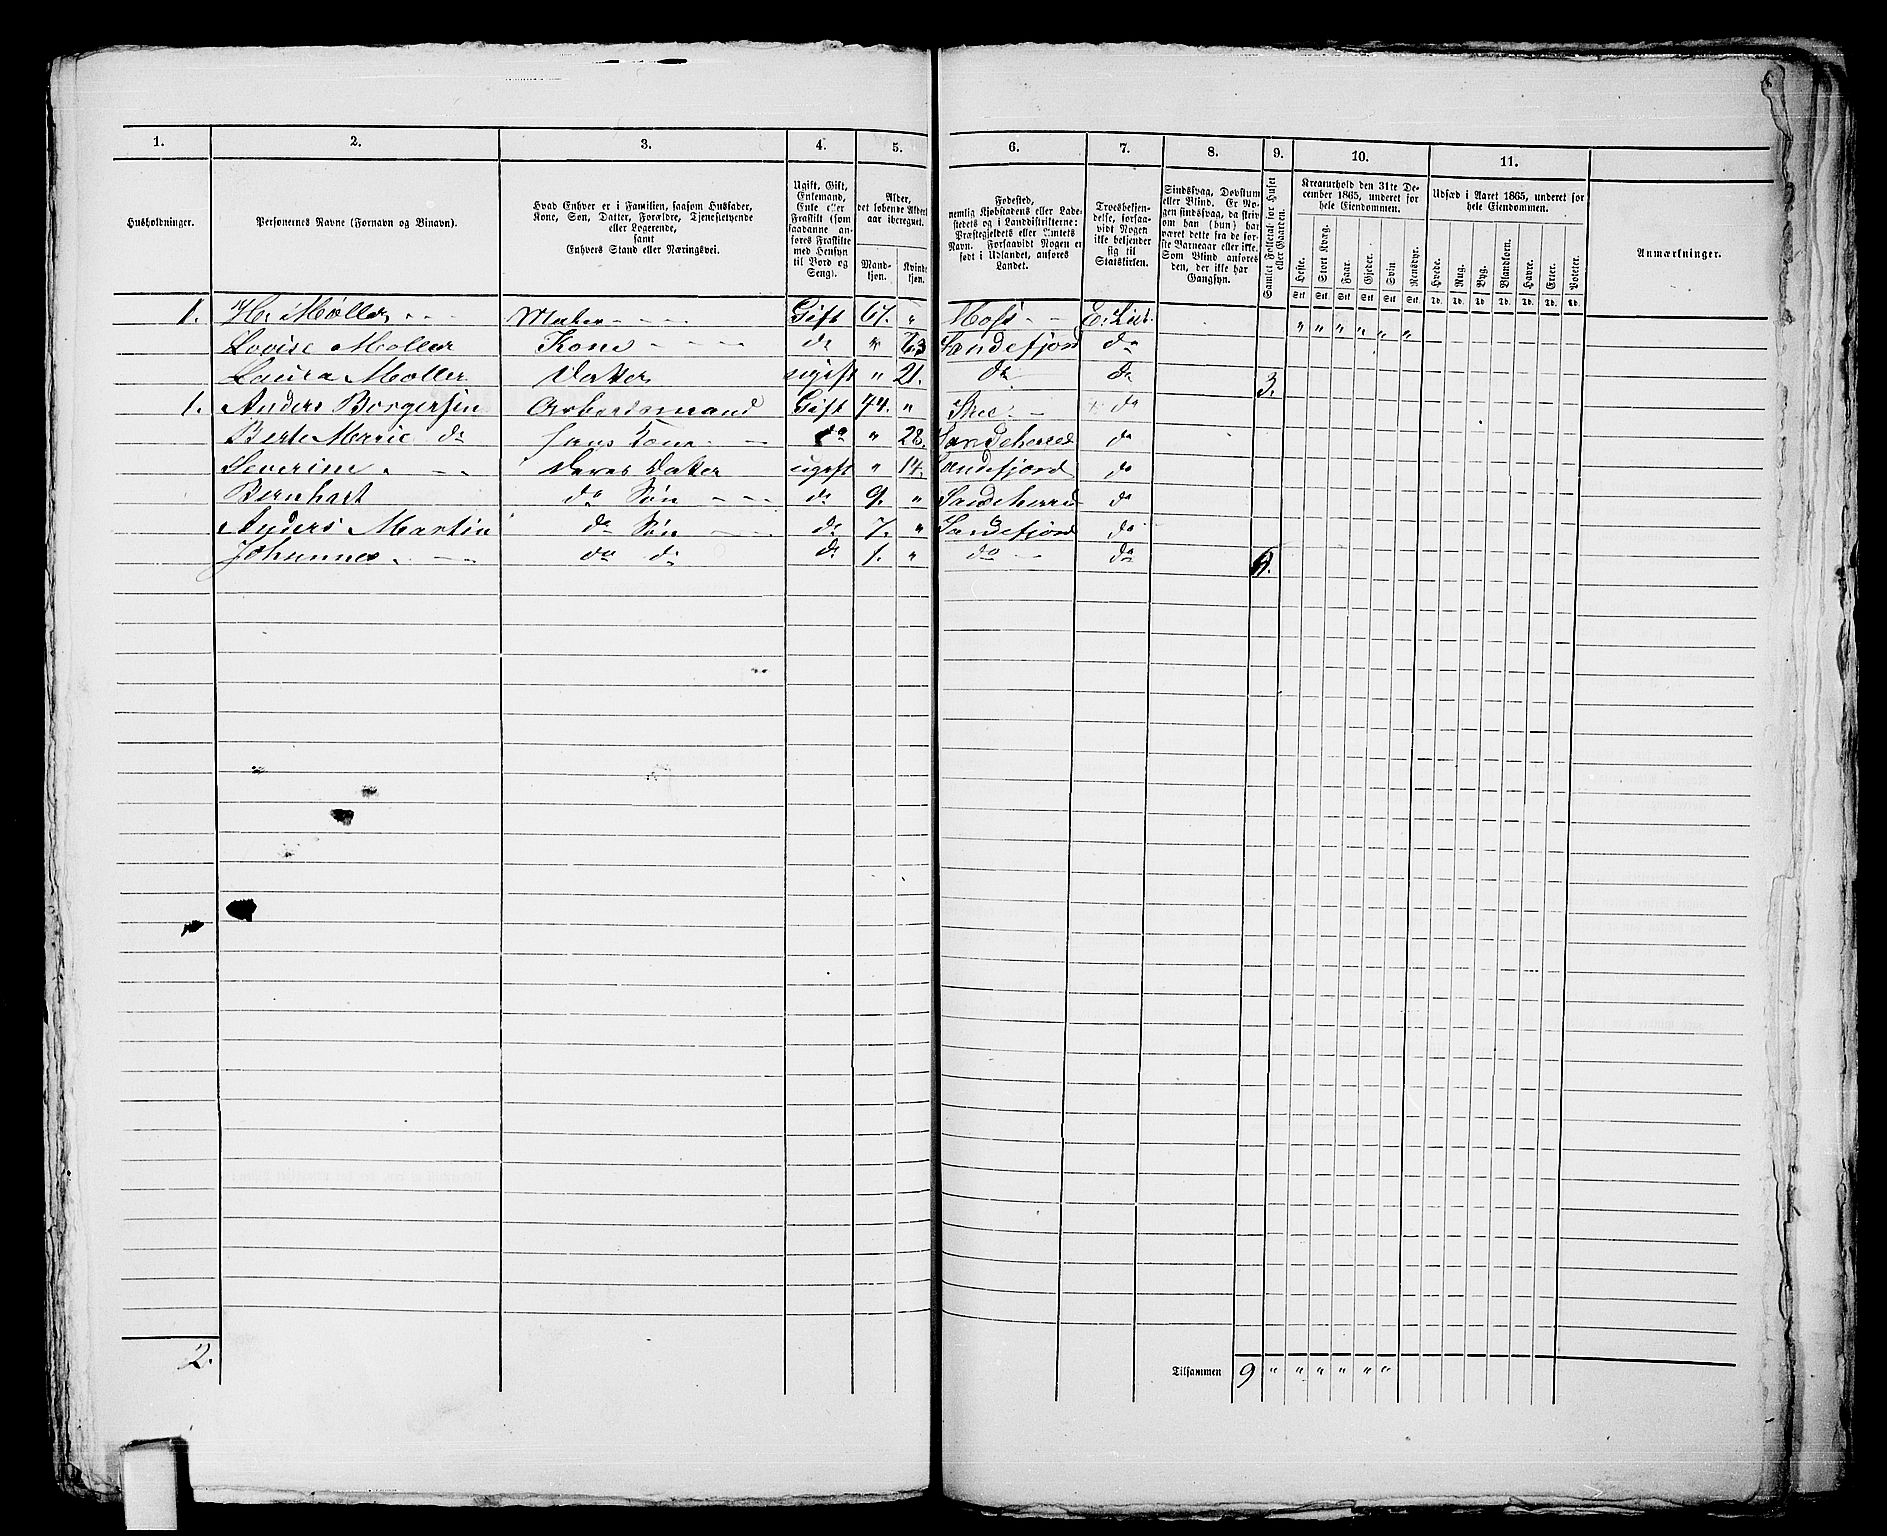 1. 2. 3. 4. 5. 6. 7. 8. 9. 10. 11.
Husholdninger.
Personernes Navne (Fornavn og Binavn).
Hvad Enhver er i Familien, saasom Husfader,
Kone, Søn, Datter, Forældre, Tjenestetyende
eller Logerende,
samt
Enhvers Stand eller Næringsvei.
Ugift, Gift,
Enkemand,
Enke eller
Fraskilt (som
saadanne an-
føres Fraskilte
med Hensyn
til Bord og
Seng).
Alder,
det løbende Alders-
aar iberegnet.
Mand-
kjøn.
Kvinde-
kjøn.
Fødested,
nemlig Kjøbstadens eller Lade-
stedets og i Landdistrikterne:
Præstegjeldets eller Amtets
Navn. Forsaavidt Nogen er
født i Udlandet, anføres
Landet.
Troesbekjen-
delse, forsaa-
vidt Nogen
ikke bekjender
sig til
Statskirken.
Sindssvag, Døvstum
eller Blind. Er No-
gen sindssvag, da skriv
om han (hun) har
været dette fra de før-
ste Barneaar eller ikke.
Som Blind anføres
den, der ikke har
Gangsyn.
Samlet Folketal for Huset
eller Gaarden.
Kreaturhold den 31te De-
cember 1865, underet for
hele Eiendommen.
Heste. Stort Kvæg. Faar. Gjeder. Svin Rensdyr.
Stk. Stk. Stk. Stk. Stk. Stk.
Udsæd i Aaret 1865, underet for
hele Eiendommen.
Hvede. Rug. Byg. Blandkorn. Havre. Erter. Poteter.
Td. Td. Td. Td. Td. Td. Td.
Anmærkninger.
1. Møller Gift 67. " Moss E. Lut. " " " " " "
Lovise Møller Kone do " Sandefjord do
Laura Møller Datter ugift " 21. do do 3.
1. Anders Borgersen Arbeidsmand Gift 74. " do
Berte Marie do hans Kone do " 28. Sandeherred do
Severine deres Datter ugift " 14. Sandefjord do
Bernhart do Søn do 9. " Sandeherred do
Anders Martin do Søn do 7. " Sandefjord do
Johannes do do do 1. " do do 6.
2.
Tilsammen 9 " " " " " "